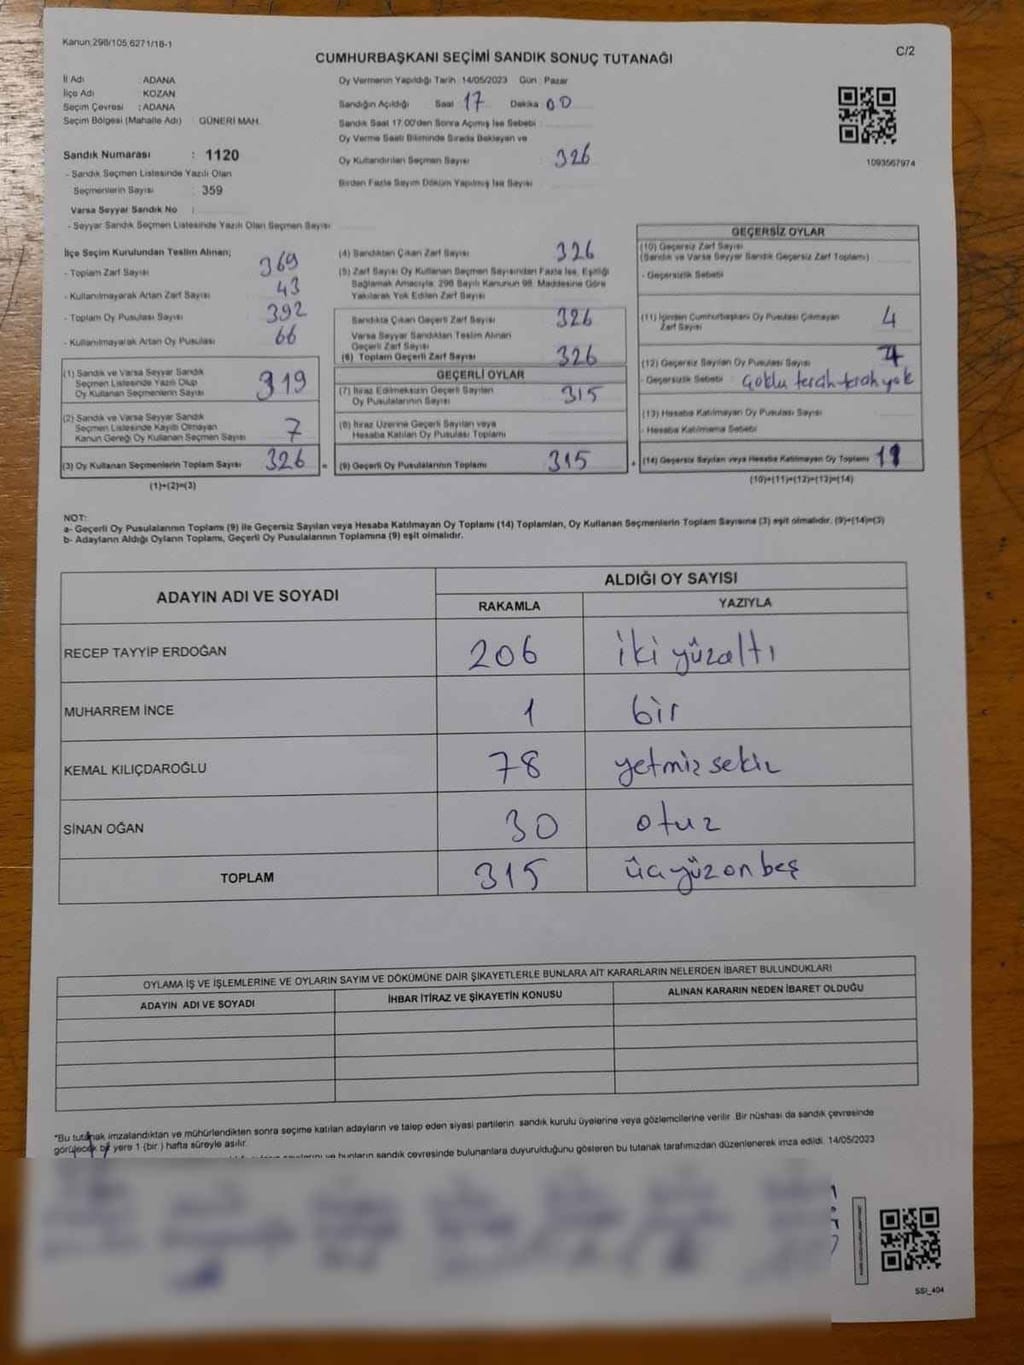 Kanun:298/105,6271/18-1
C/2
CUMHURBAŞKANI SEÇİMİ SANDIK SONUÇ TUTANAĞI
İl Adı : ADANA
İlçe Adı : KOZAN
Seçim Çevresi : ADANA
Seçim Bölgesi (Mahalle Adı) : GÜNERİ MAH.
Sandık Numarası : 1120
- Sandık Seçmen Listesinde Yazılı Olan
Seçmenlerin Sayısı : 359
Varsa Seyyar Sandık No :
- Seyyar Sandık Seçmen Listesinde Yazılı Olan Seçmen Sayısı
Oy Vermenin Yapıldığı Tarih : 14/05/2023 Gün : Pazar
Sandığın Açıldığı Saat 17 Dakika 00
Sandık Saat 17:00'den Sonra Açılmış İse Sebebi :
Oy Verme Saati Bitiminde Sırada Bekleyen ve
Oy Kullandırılan Seçmen Sayısı : 326
Birden Fazla Sayım Döküm Yapılmış İse Sayısı
1093567974
İlçe Seçim Kurulundan Teslim Alınan;
- Toplam Zarf Sayısı 369
- Kullanılmayarak Artan Zarf Sayısı 43
- Toplam Oy Pusulası Sayısı 392
- Kullanılmayarak Artan Oy Pusulası 66
(1) Sandık ve Varsa Seyyar Sandık
Seçmen Listesinde Yazılı Olup
Oy Kullanan Seçmenlerin Sayısı 319
(2) Sandık ve Varsa Seyyar Sandık
Seçmen Listesinde Kayıtlı Olmayan
Kanun Gereği Oy Kullanan Seçmen Sayısı 7
(3) Oy Kullanan Seçmenlerin Toplam Sayısı 326 =
(1)+(2)=(3)
(4) Sandıktan Çıkan Zarf Sayısı 326
(5) Zarf Sayısı Oy Kullanan Seçmen Sayısından Fazla İse, Eşitliği
Sağlamak Amacıyla, 298 Sayılı Kanunun 98. Maddesine Göre
Yakılarak Yok Edilen Zarf Sayısı
Sandıkta Çıkan Geçerli Zarf Sayısı 326
Varsa Seyyar Sandıktan Teslim Alınan
Geçerli Zarf Sayısı
(6) Toplam Geçerli Zarf Sayısı 326
GEÇERLİ OYLAR
(7) İtiraz Edilmeksizin Geçerli Sayılan
Oy Pusulalarının Sayısı 315
(8) İtiraz Üzerine Geçerli Sayılan veya
Hesaba Katılan Oy Pusulası Toplamı
(9) Geçerli Oy Pusulalarının Toplamı 315 +
GEÇERSİZ OYLAR
(10) Geçersiz Zarf Sayısı
(Sandık ve Varsa Seyyar Sandık Geçersiz Zarf Toplamı)
- Geçersizlik Sebebi
(11) İçinden Cumhurbaşkanı Oy Pusulası Çıkmayan
Zarf Sayısı 4
(12) Geçersiz Sayılan Oy Pusulası Sayısı 7
- Geçersizlik Sebebi : Çoklu tercih tercih yok
(13) Hesaba Katılmayan Oy Pusulası Sayısı
- Hesaba Katılmama Sebebi
(14) Geçersiz Sayılan veya Hesaba Katılmayan Oy Toplamı 11
(10)+(11)+(12)+(13)=(14)
NOT:
a- Geçerli Oy Pusulalarının Toplamı (9) ile Geçersiz Sayılan veya Hesaba Katılmayan Oy Toplamı (14) Toplamları, Oy Kullanan Seçmenlerin Toplam Sayısına (3) eşit olmalıdır. (9)+(14)=(3)
b- Adayların Aldığı Oyların Toplamı, Geçerli Oy Pusulalarının Toplamına (9) eşit olmalıdır.
ADAYIN ADI VE SOYADI
ALDIĞI OY SAYISI
RAKAMLA YAZIYLA
RECEP TAYYİP ERDOĞAN 206 iki yüzaltı
MUHARREM İNCE 1 bir
KEMAL KILIÇDAROĞLU 78 yetmiz sekiz
SİNAN OĞAN 30 otuz
TOPLAM 315 üçyüzonbeş
OYLAMA İŞ VE İŞLEMLERİNE VE OYLARIN SAYIM VE DÖKÜMÜNE DAİR ŞİKAYETLERLE BUNLARA AİT KARARLARIN NELERDEN İBARET BULUNDUKLARI
ADAYIN ADI VE SOYADI İHBAR İTİRAZ VE ŞİKAYETİN KONUSU ALINAN KARARIN NEDEN İBARET OLDUĞU
*Bu tutanak imzalandıktan ve mühürlendikten sonra seçime katılan adayların ve talep eden siyasi partilerin sandık kurulu üyelerine veya gözlemcilerine verilir. Bir nüshası da sandık çevresinde
görülecek bir yere 1 (bir ) hafta süreyle asılır.
ve bunların sandık çevresinde bulunanlara duyurulduğunu gösteren bu tutanak tarafımızdan düzenlenerek imza edildi. 14/05/2023
SSI_404